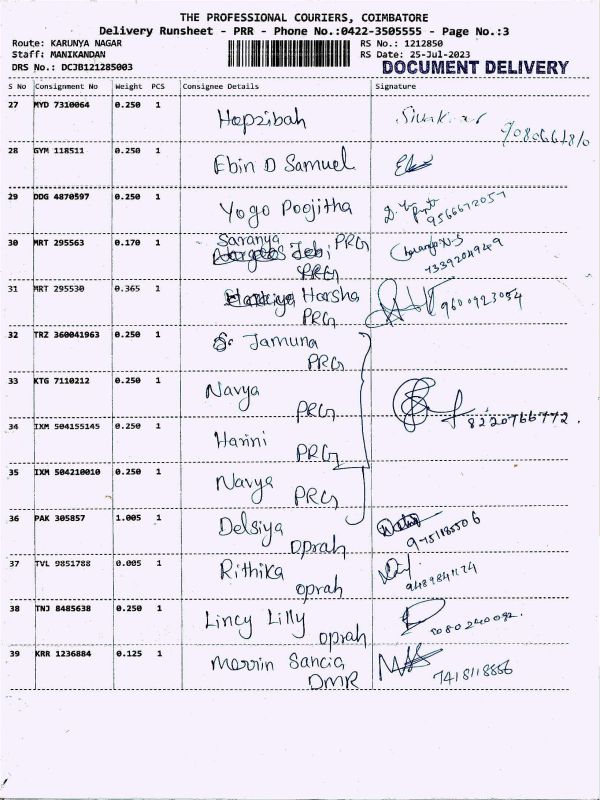 THE PROFESSIONAL COURIERS, COIMBATORE
Delivery Runsheet - PRR - Phone No.:0422-3505555 - Page No.:3
Route: KARUNYA NAGAR RS No.: 1212850
Staff: MANIKANDAN RS Date: 25-Jul-2023
DRS No.: DCJB121285003 DOCUMENT DELIVERY
S No Consignment No Weight PCS Consignee Details Signature
27 MYD 7310064 0.250 1 Hepzibah
28 GYM 118511 0.250 1 Ebin D Samuel
29 DDG 4870597 0.250 1 Yogo Poojitha
9566672057
30 MRT 295563 0.170 1 Saranya PRG
Jebi
PRG 7339204949
31 MRT 295530 0.365 1 Harsha
PRG 9600923054
32 TRZ 360041963 0.250 1 S. Jamuna
PRG
33 KTG 7110212 0.250 1 Navya
PRG 8220766772.
34 IXM 504155145 0.250 1 Harini
PRG
35 IXM 504210010 0.250 1 Navya
PRG
36 PAK 305857 1.005 1 Delsiya
oprah
37 TVL 9851788 0.005 1 Rithika
oprah
38 TNJ 8485638 0.250 1 Lincy Lilly
oprah 8080240092.
39 KRR 1236884 0.125 1 Merrin Sancia
DMR 7418118866